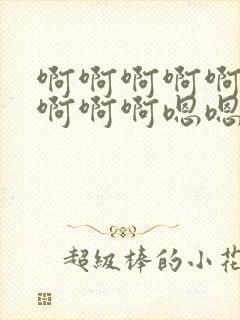 啊啊啊啊啊
啊啊啊嗯嗯
超級棒的小花